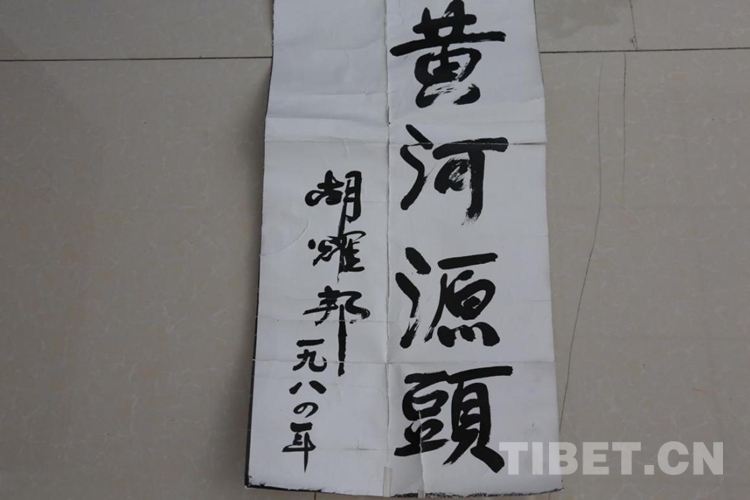 黄河源頭
胡耀邦
一九八四年
TIBET.CN